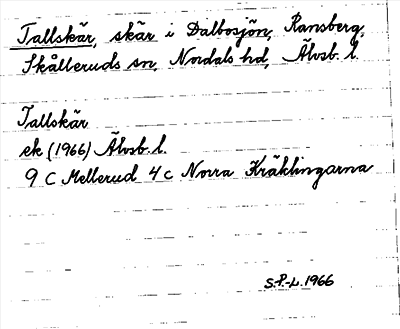 Tallskär, skär i Dalbosjön, Ransberg,
Skålleruds sn, Nordals hd, Älvsb. l.
Tallskär
ek (1966) Älvsb. l.
9 C Mellerud 4 c Norra Kräklingarna
S.P.-L. 1966